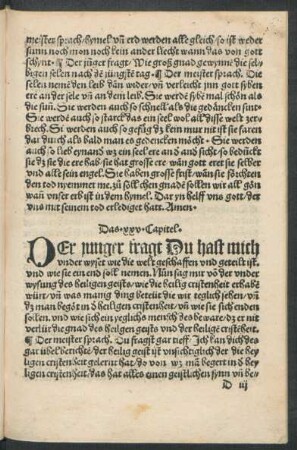 meister sprach/hymel vn̄ erd werden alle gleich·so ist weder
sunn noch mon noch kein ander liecht wann das von gott
schynt·¶ Der jūger fragt·Wie groß gnad gewynne die sel-
bigen selen nach dē jūngstē tag·¶ Der meister sprach. Die
selen nemē den leib dān wider/vn̄ verleicht inn gott sybē er
ere an der sele vn̄ an dem leib. Sie werdē sybē mal schön als
die sun̄. Sie werden auch so schnell als die gedāncken sint·
Sie werdē auch so starck das ein seel wol all disse welt zer-
brech. Si werden auch so gefüg dz kein mur nit ist sie faren
dar durch als bald man es gedencken möcht·Sie werden
auch so lieb wz ein seel ere
dz sie die ere hab·sie hat grosse ere wān gott eret sie selber
vnd alle sein engel. Sie haben grosse freüd/wān sie förchten
den tod nyemmer me. zu sölchen gnadē sollen wir all gān
wan̄ vnser erb ist in dem hymel. Dar zu helff vns gott/der
vns mit seinem tod erlediget hatt. Amen·
Das·xxv·Capitel·
DEr iunger fragt Du hast mich
vnder wyset wie die welt geschaffen vnd geteilt ist.
vnd wie sie ein end soll nemen. Nūn sag mir vō der vnder
wysung des heiligen geists·wie die heilig cristenheit erhabē
würt·vn̄ was manig ding beteüt die wir teglich sehen·vn̄
dz man begöt in d heyligen cristenheit/vn̄ wie sie sich enden
sollen. vnd wie sich ein yeglich mensch des beware/dz er nit
verlür die gnad des heiligen geists vnd der heiligē cristēheit.
¶ Der meister sprach. Du fragst gar tieff Ich kan dich des
gar übel berichtē/der heilig geist ist vnsichtiglich der die hey
ligen cristenheit gelernt hat/do von wz mā begert in d hey
ligen cristenheit/das hat alles einen geistlichen synn vn̄ be-
D iij